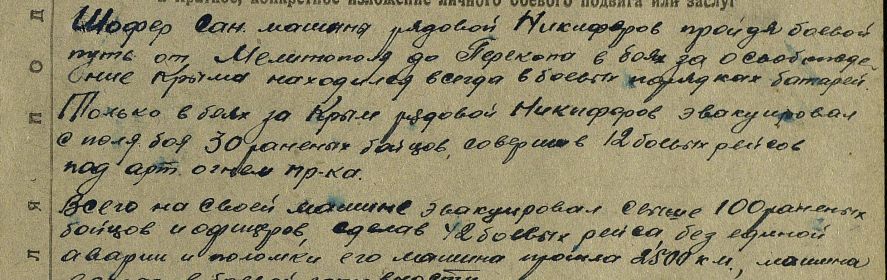 I Краткое, конкретное изложение личного боевого подвига или заслуг
Шофер сан. машины рядовой Никифоров пройдя боевой
путь от Мелитополя до Перекопа в боях за освобожде-
ение Крыма находился всегда в боевых порядках батарей.
Только в боях за Крым рядовой Никифоров эвакуировал
с поля боя 30 раненых бойцов, совершив 12 боевых рейсов
под арт. огнем пр-ка.
Всего на своей машине эвакуировал свыше 100 раненых
бойцов и офицеров, сделав 42 боевых рейса, без единой
аварии и поломки, его машина прошла 2500 км, машина
в боевой готовности